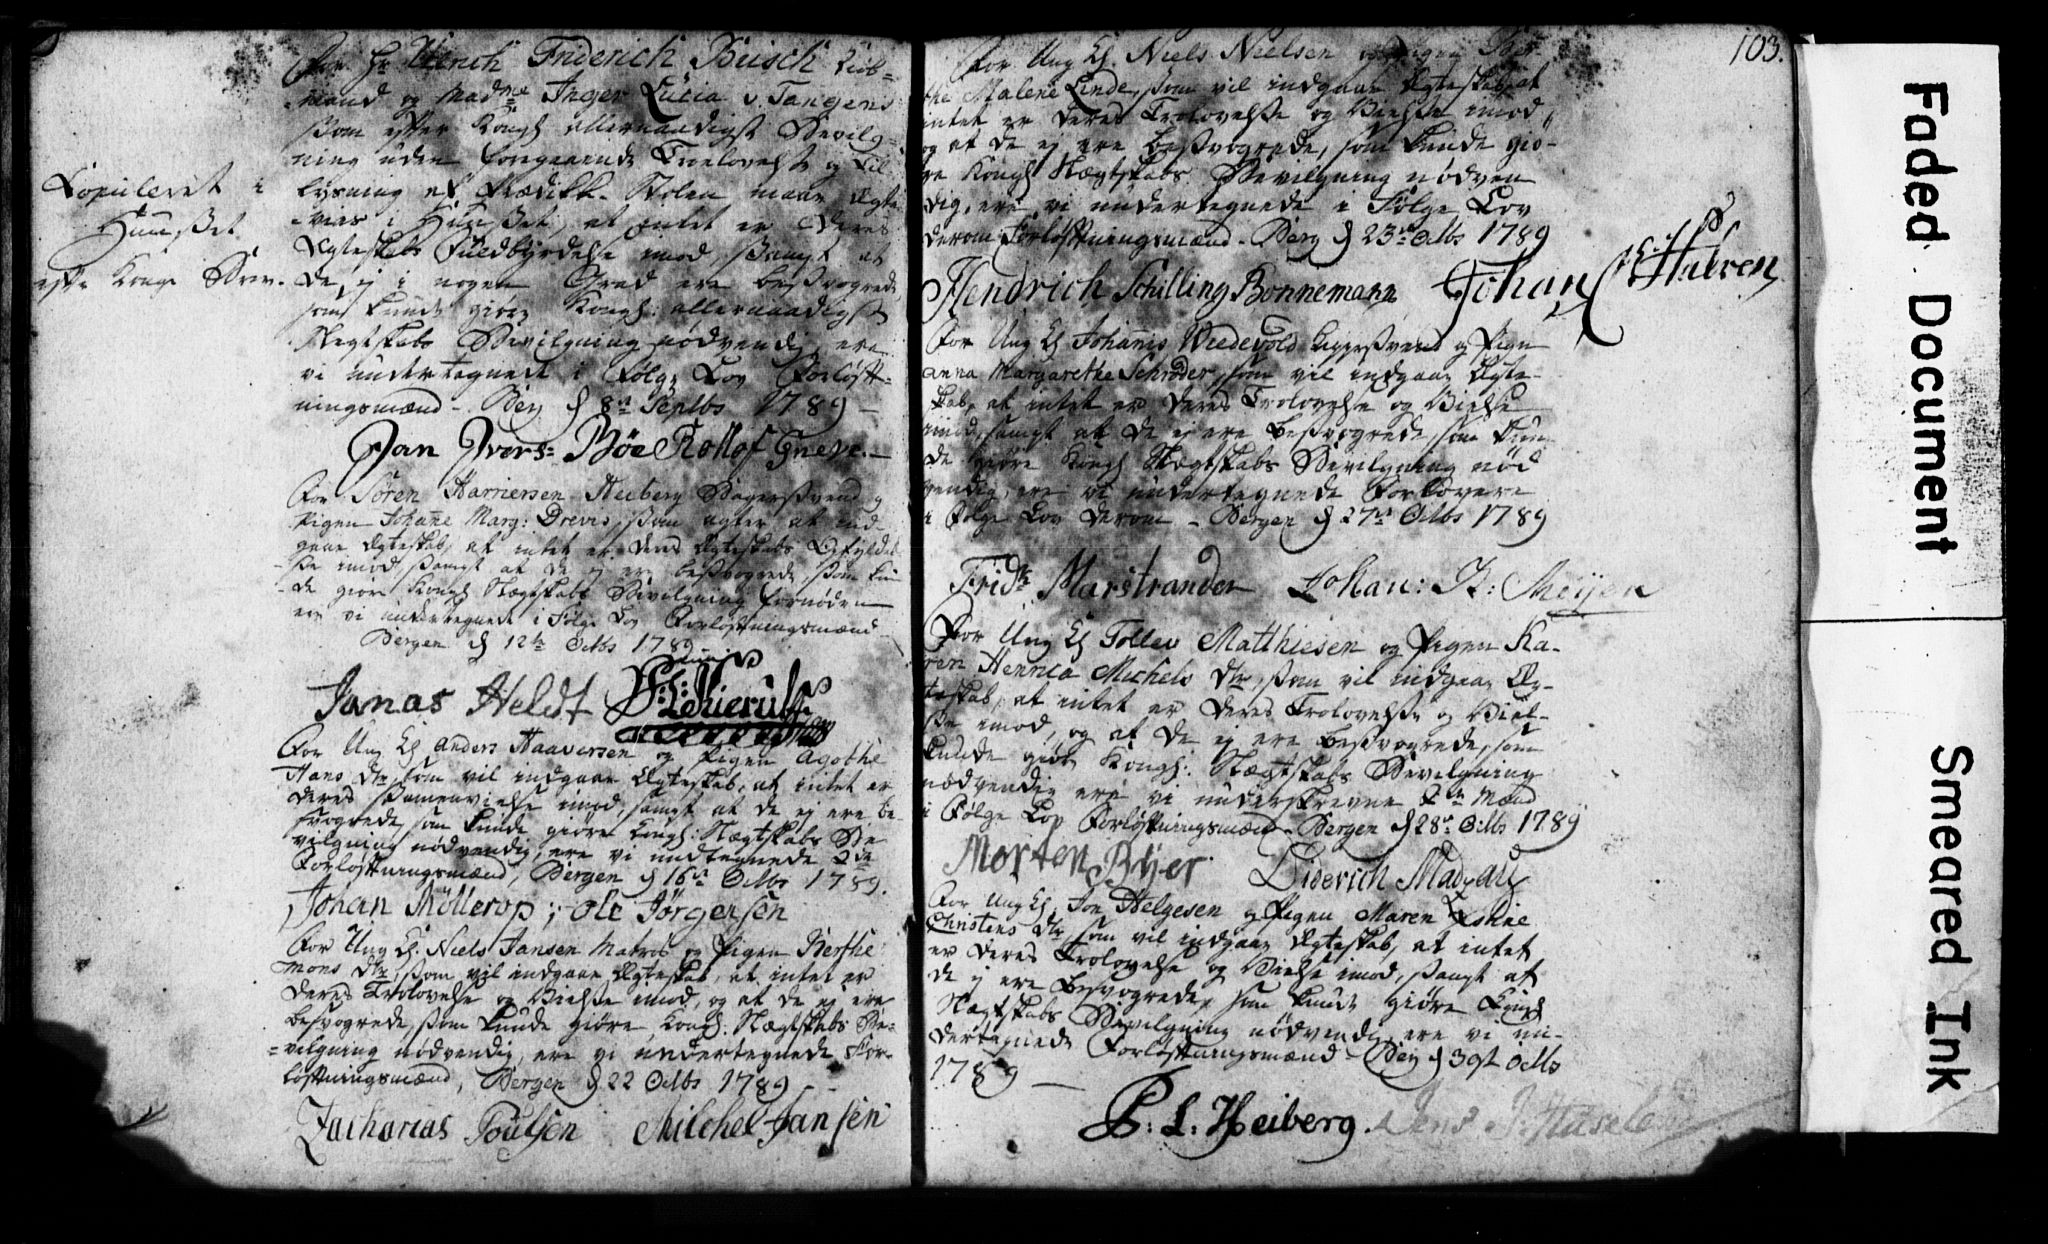 Copuleret i
Huuset
efter Kongl. Brev.
For Hr. Hinrich Friderich Büsch Kiøb-
mand og Madme Inger Lucia v. Tangens
som efter Kongl. allernaadigst Bevilg-
ning uden foregaaende Troelovelse og Til-
lysning af Prædike-Stolen maae Ægte-
vies i Huuset, at intet er Deres
Ægteskabs Fuldbyrdelse imod, samt at
de ej i nogen Grad ere besvogrede,
som kunde giøre Kongl. allernaadigst
Slegtskabs Bevilgning nødvendig, ere
vi undertegnede i Følge Lov Forløft-
ningsmænd - Berg. d. 8de Septbr 1789 -
Jan Ivers: Bøe Rollof Greve.
For Søren Harriersen Heiberg Bagersvend og
Pigen Johanne Marg: Drevis, som agter at ind-
gaae Ægteskab, at intet er deres Ægteskabs Opfyldel-
se imod, samt at de ej ere besvogrede som kun-
de giøre Kongl. Slegtskabs Bevilgning fornøden
ere vi undertegnede i Følge Lov Forløftningsmænd
Bergen d 12te Octbr 1789 -
Jonas Heldt
For Ung K. Anders Haaversen og Pigen Agothe
Hans Dtr, som vil indgaae Ægteskab, at intet er
deres Sammenvielse imod, samt at de ej ere be-
svogrede, som kunde giøre Kongl: Slægtskabs Be-
vilgning nødvendig, ere vi undtegnede 2de
Forløftningsmænd, Bergen d 16de Octbr 1789.
Johan Möllerop; Ole Jörgensen
For Ung K. Niels Jansen Matros og Pigen Berthe
Mons Dtr, som vil indgaae Ægteskab, at intet er
deres Trolovelse og Vielse imod, og at de ej ere
besvogrede, som kunde giøre Kongl. Slægtskabs Be-
vilgning nødvendig, ere vi undertegnede For-
løftningsmænd, Bergen d 22 Octbr 1789 -
Zacharias Poulsen Michel Jansen
103.
For Ung K. Niels Nielsen og Pigen Ber-
the Malene Linde, som vil indgaae Ægteskab, at
intet er deres Trolovelse og Vielse imod,
og at de ej ere besvogrede, som kunde giø-
re Kongl Slægtskabs Bevilgning nødven
dig, ere vi undertegnede i Følge Lov
derom Forløftningsmænd - Berg d 23de Octbr 1789
Hendrich Schilling Bonnemann Johan
For Ung K Johannis Wiedevold og Pigen
Anna Margarethe Schrøder, som vil indgaae Ægte-
skab, at intet er deres Trolovelse og Vielse
imod, samt at de ej ere besvogrede, som kun-
de giøre Kongl Slægtskabs Bevilgning nød
vendig, ere vi undertegnede Forlovere
i Følge Lov derom - Bergen d 27de Octbr 1789
Fridr Marstrander Johan: K: Meijer
For Ung K Tollev Matthiesen og Pigen Ka-
ren Henrica Michels Dtr, som vil indgaae Æg-
teskab, at intet er deres Trolovelse og Viel-
se imod, og at de ej ere besvogrede, som
kunde giøre Kongl: Slægtskabs Bevilgning
nødvendig ere vi underskrevne 2de Mænd
i Følge Lov Forløftningsmænd - Bergen d 28de Octbr 1789
Morten Bÿer Diderich Madzau
For Ung K, Jon Helgesen og Pigen Maren
Christens Dtr, som vil indgaae Ægteskab, at intet
er deres Trolovelse og Vielse imod, samt at
de ej ere besvogrede, som kunde giøre Kongl
Slægtskabs Bevilgning nødvendig, ere vi un-
dertegnede Forløftningsmænd - Berg d 30st Octbr
1789 -
P: L: Heiberg. Jens
Faded Document
Smeared Ink